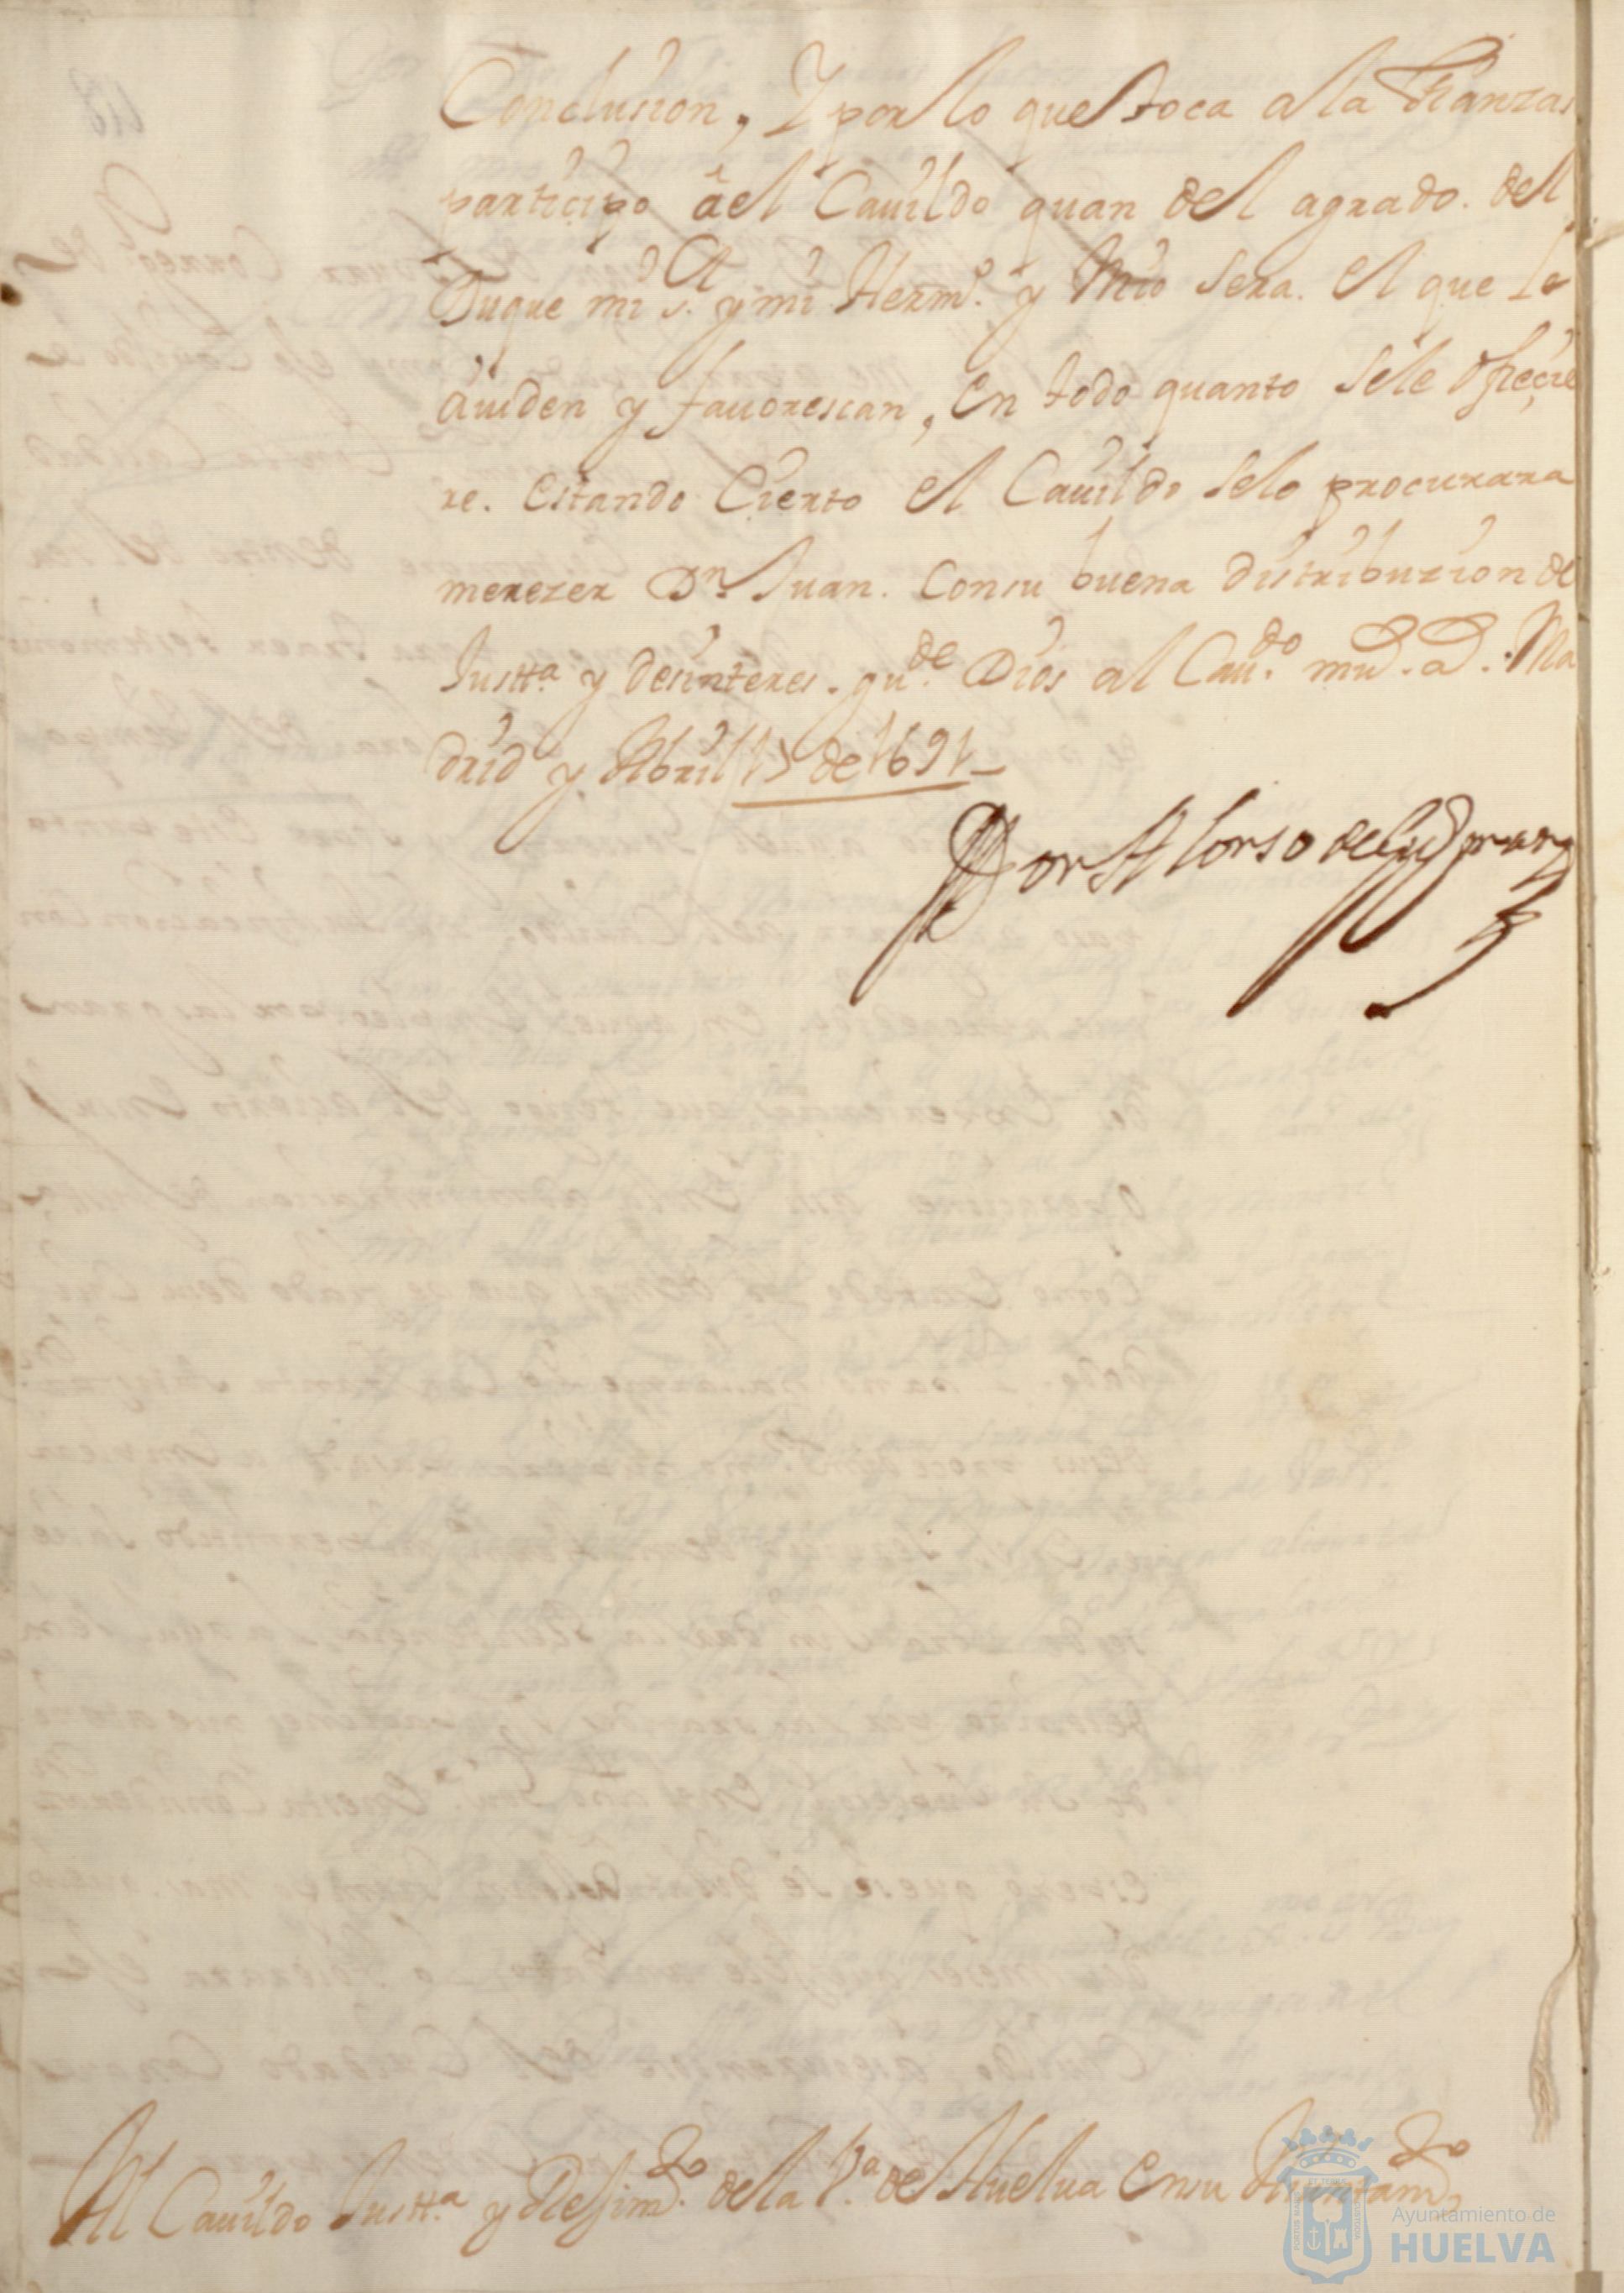 Conclusion, Y por lo que toca a la fianzas
participo âel Cauildo quan del agrado. del
Duque mi s.r y mi Herm.o y Mio sera. El que le
aiuden y fauorescan, En todo quanto Sele ofreçie
re. Estando Cierto el Cauildo Selo procurara
merezer D.n Juan. Consu buena distribuzion de
Justt.a y desinteres. gu.de Dios al Cau.do m.s a.s. Ma
drid y Abril 15 de 1691
Don Alonso de Guzman
Al Cauildo Justt.a y Rejim.to de la V.a de Huelua Ensu Aiuntam.to
Ayuntamiento de
HUELVA